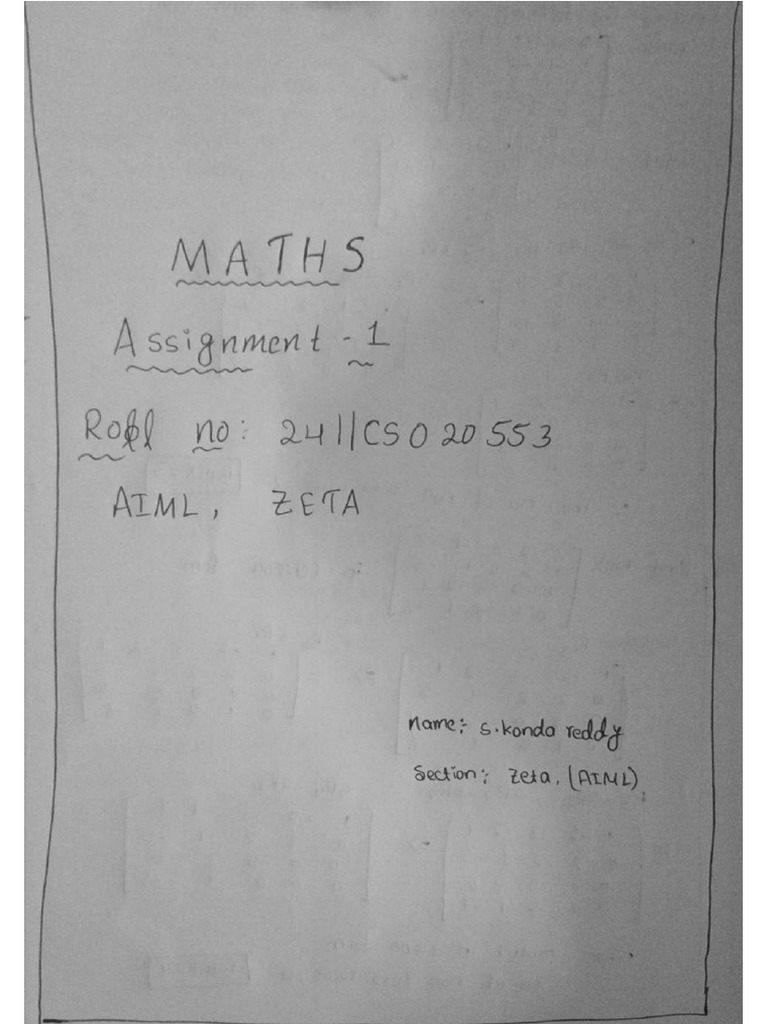 MATHS
Assignment - 1
Roll no: 2411CS020553
AIML, ZETA
name:- s.konda reddy
Section:- Zeta, (AIML)